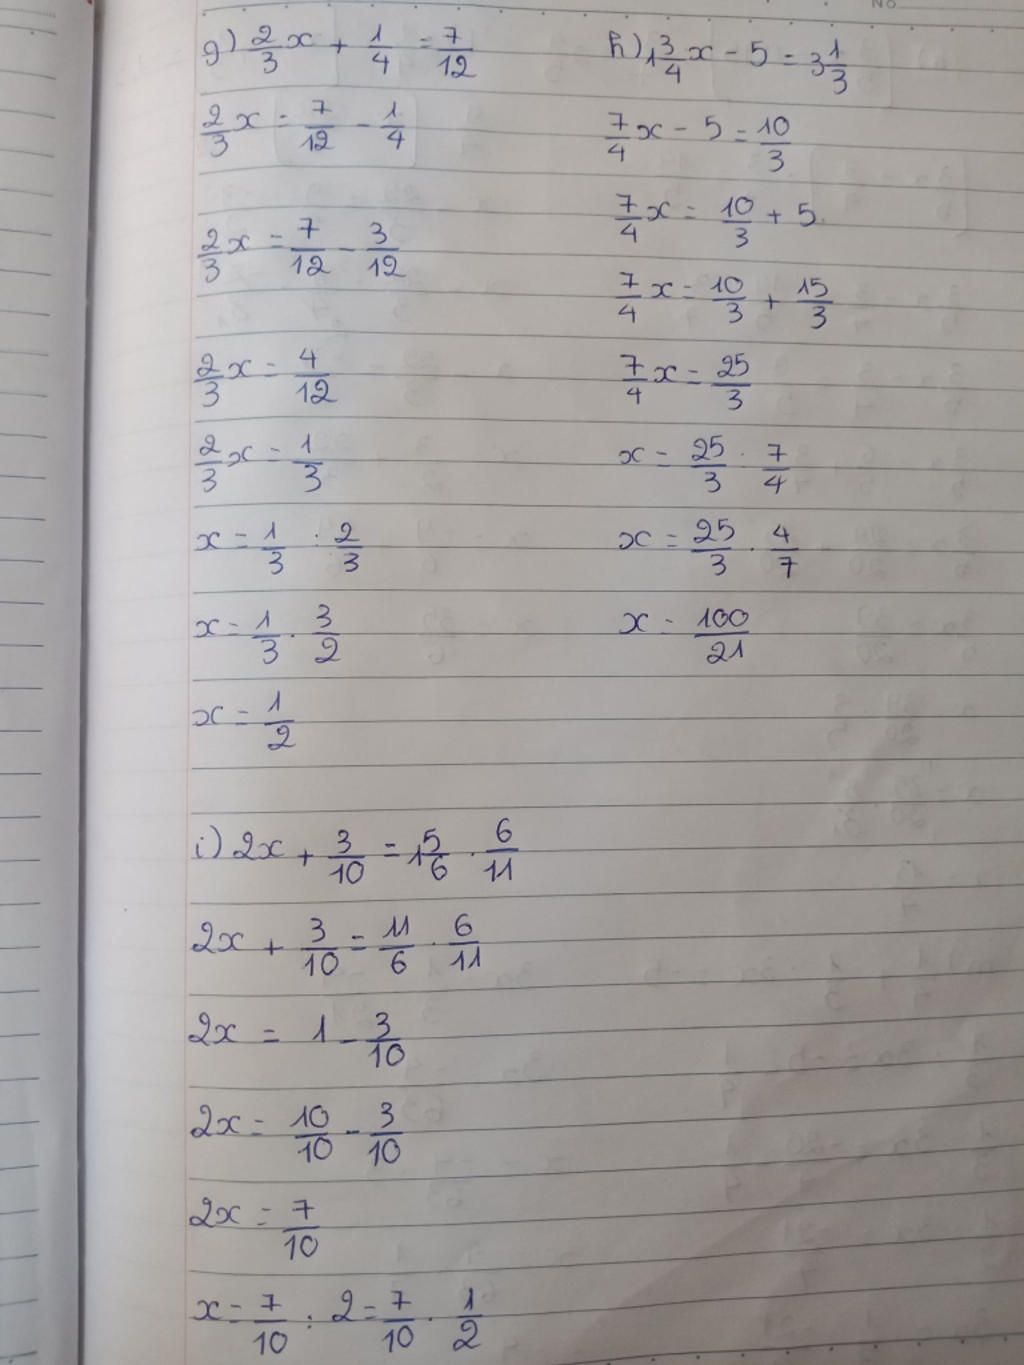 No
g) 2/3 x + 1/4 = 7/12
2/3 x = 7/12 - 1/4
2/3 x = 7/12 - 3/12
2/3 x = 4/12
2/3 x = 1/3
x = 1/3 : 2/3
x = 1/3 . 3/2
x = 1/2
h) 1 3/4 x - 5 = 3 1/3
7/4 x - 5 = 10/3
7/4 x = 10/3 + 5
7/4 x = 10/3 + 15/3
7/4 x = 25/3
x = 25/3 : 7/4
x = 25/3 . 4/7
x = 100/21
i) 2x + 3/10 = 1 5/6 . 6/11
2x + 3/10 = 11/6 . 6/11
2x = 1 - 3/10
2x = 10/10 - 3/10
2x = 7/10
x = 7/10 : 2 = 7/10 . 1/2